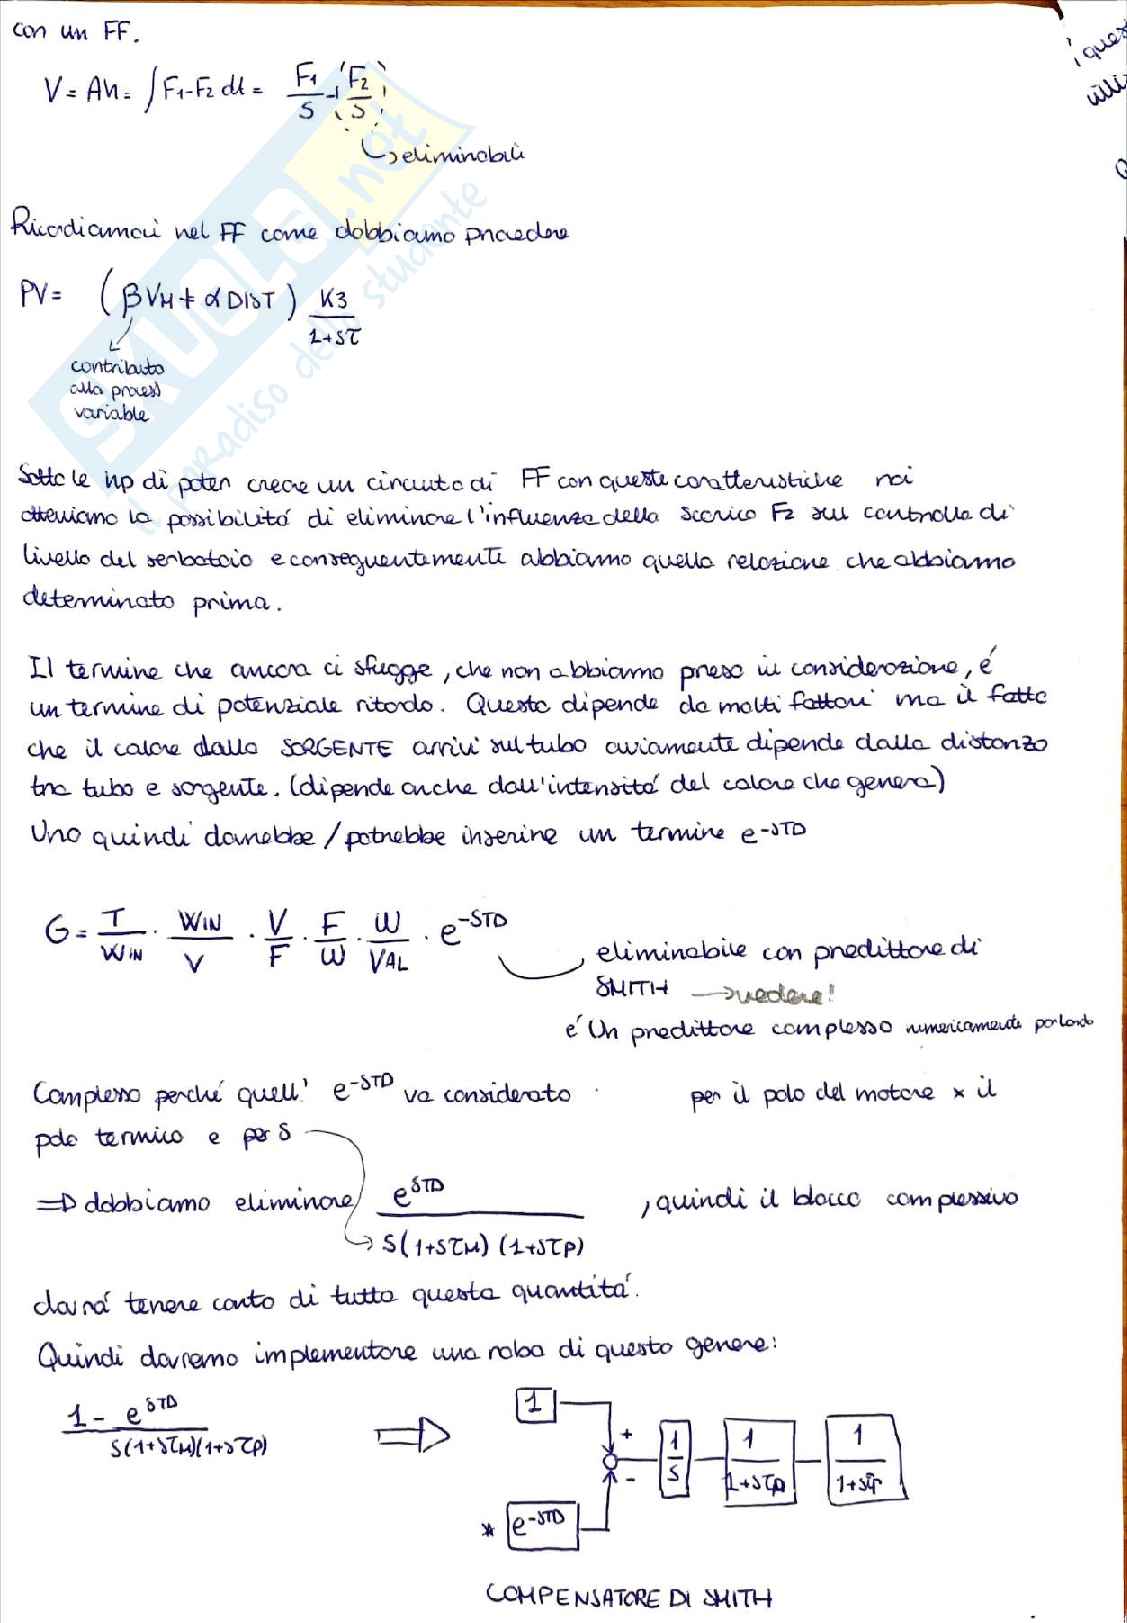 con un FF.
V = Ah = ∫ F1-F2 dt = F1/S - (F2/S)
↳ eliminabili
Ricordiamoci nel FF come dobbiamo procedere
PV = (βVM + αDIST) K3/(1+Sτ)
contributo
alla process
variable
Sotto le hp di poter creare un circuito di FF con queste caratteristiche noi
otteniamo la possibilità di eliminare l'influenza dello scarico F2 sul controllo di
livello del serbatoio e conseguentemente abbiamo quella relazione che abbiamo
determinato prima.
Il termine che ancora ci sfugge, che non abbiamo preso in considerazione, é
un termine di potenziale ritardo. Questo dipende da molti fattori ma il fatto
che il calore dalla SORGENTE arrivi sul tubo ovviamente dipende dalla distanza
tra tubo e sorgente. (dipende anche dall'intensità del calore che genera)
Uno quindi dovrebbe / potrebbe inserire un termine e-STD
G = T/WIN · WIN/V · V/F · F/W · W/VAL · e-STD
eliminabile con predittore di
SMITH → vedere!
é Un predittore complesso numericamente parlando
Complesso perché quell' e-STD va considerato per il polo del motore x il
polo termico e per S
⇒ dobbiamo eliminare eSTD / S(1+SτM)(1+SτP) , quindi il blocco complessivo
dovrà tenere conto di tutta questa quantità.
Quindi dovremo implementare una roba di questo genere:
1 - eSTD / S(1+SτM)(1+SτP) ⇒
1
+
-
1/S
1/(1+SτP)
* e-STD
COMPENSATORE DI SMITH
SKUOLA.net
il paradiso dello studente